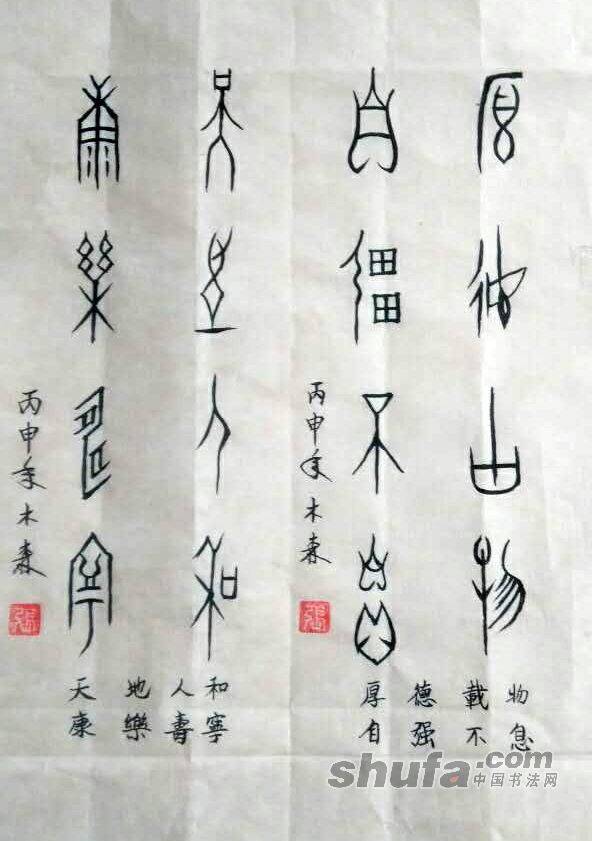 厚德載物
自强不息
丙申年木森
天地人和
康樂壽寧
丙申年木森
厚德載物
自强不息
天地人和
康樂壽寧
shufa.com
中国书法网